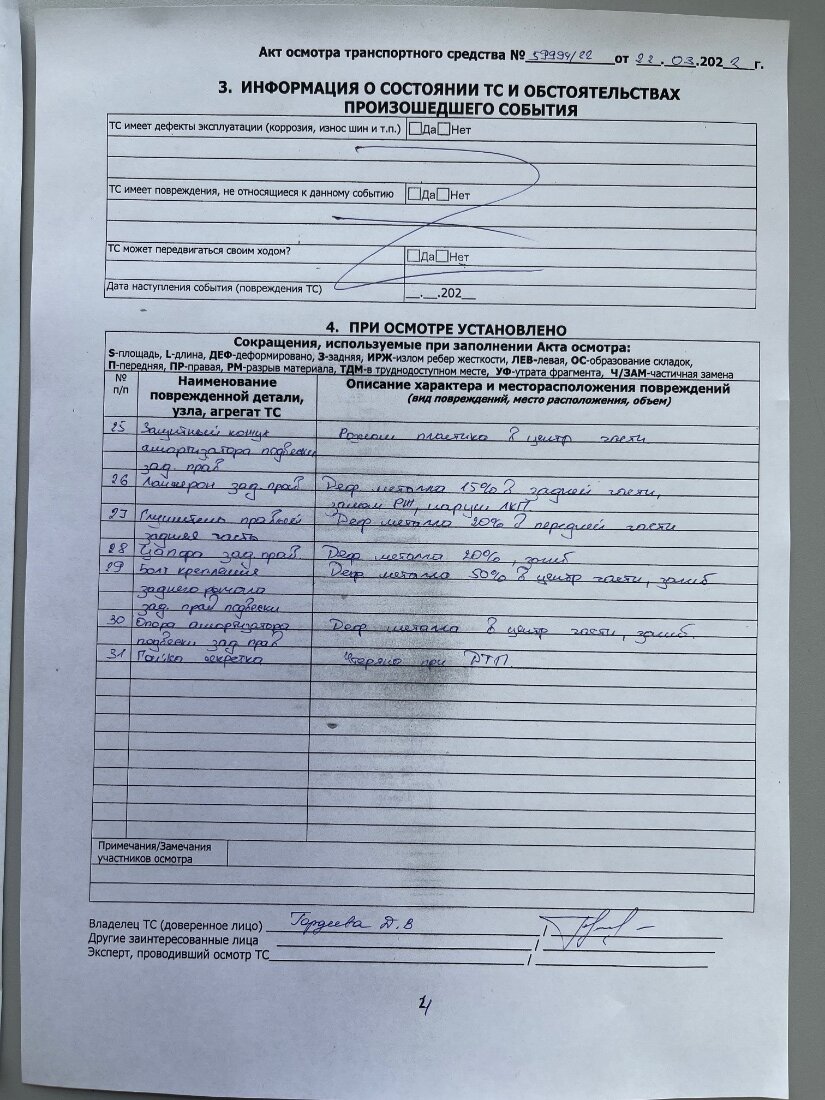 Акт осмотра транспортного средства № 59994/22 от 22.03.2022 г.
3. ИНФОРМАЦИЯ О СОСТОЯНИИ ТС И ОБСТОЯТЕЛЬСТВАХ
ПРОИЗОШЕДШЕГО СОБЫТИЯ
ТС имеет дефекты эксплуатации (коррозия, износ шин и т.п.) Да Нет
ТС имеет повреждения, не относящиеся к данному событию Да Нет
ТС может передвигаться своим ходом? Да Нет
Дата наступления события (повреждения ТС) __.__.202__
4. ПРИ ОСМОТРЕ УСТАНОВЛЕНО
Сокращения, используемые при заполнении Акта осмотра:
S-площадь, L-длина, ДЕФ-деформировано, З-задняя, ИРЖ-излом ребер жесткости, ЛЕВ-левая, ОС-образование складок,
П-передняя, ПР-правая, РМ-разрыв материала, ТДМ-в труднодоступном месте, УФ-утрата фрагмента, Ч/ЗАМ-частичная замена
№ п/п Наименование поврежденной детали, узла, агрегат ТС Описание характера и месторасположения повреждений
(вид повреждений, место расположения, объем)
25 Защитный кожух пластика в центр части
амортизатора подвески
зад. прав
26 Лонжерон зад. прав Деф металла 15% в задней части,
залом РЖ, наруш ЛКП
27 Глушитель правый Деф металла 20% в передней части
задняя часть
28 Цапфа зад. прав Деф металла 20%, загиб
29 Болт крепления Деф металла 50% в центр части, загиб
заднего рычага
зад. прав подвески
30 Опора амортизатора Деф металла в центр части, загиб.
подвески зад прав
31 Гайка секретка Утеряна при ДТП
Примечания/Замечания
участников осмотра
Владелец ТС (доверенное лицо) Гордеева Д. В
Другие заинтересованные лица
Эксперт, проводивший осмотр ТС